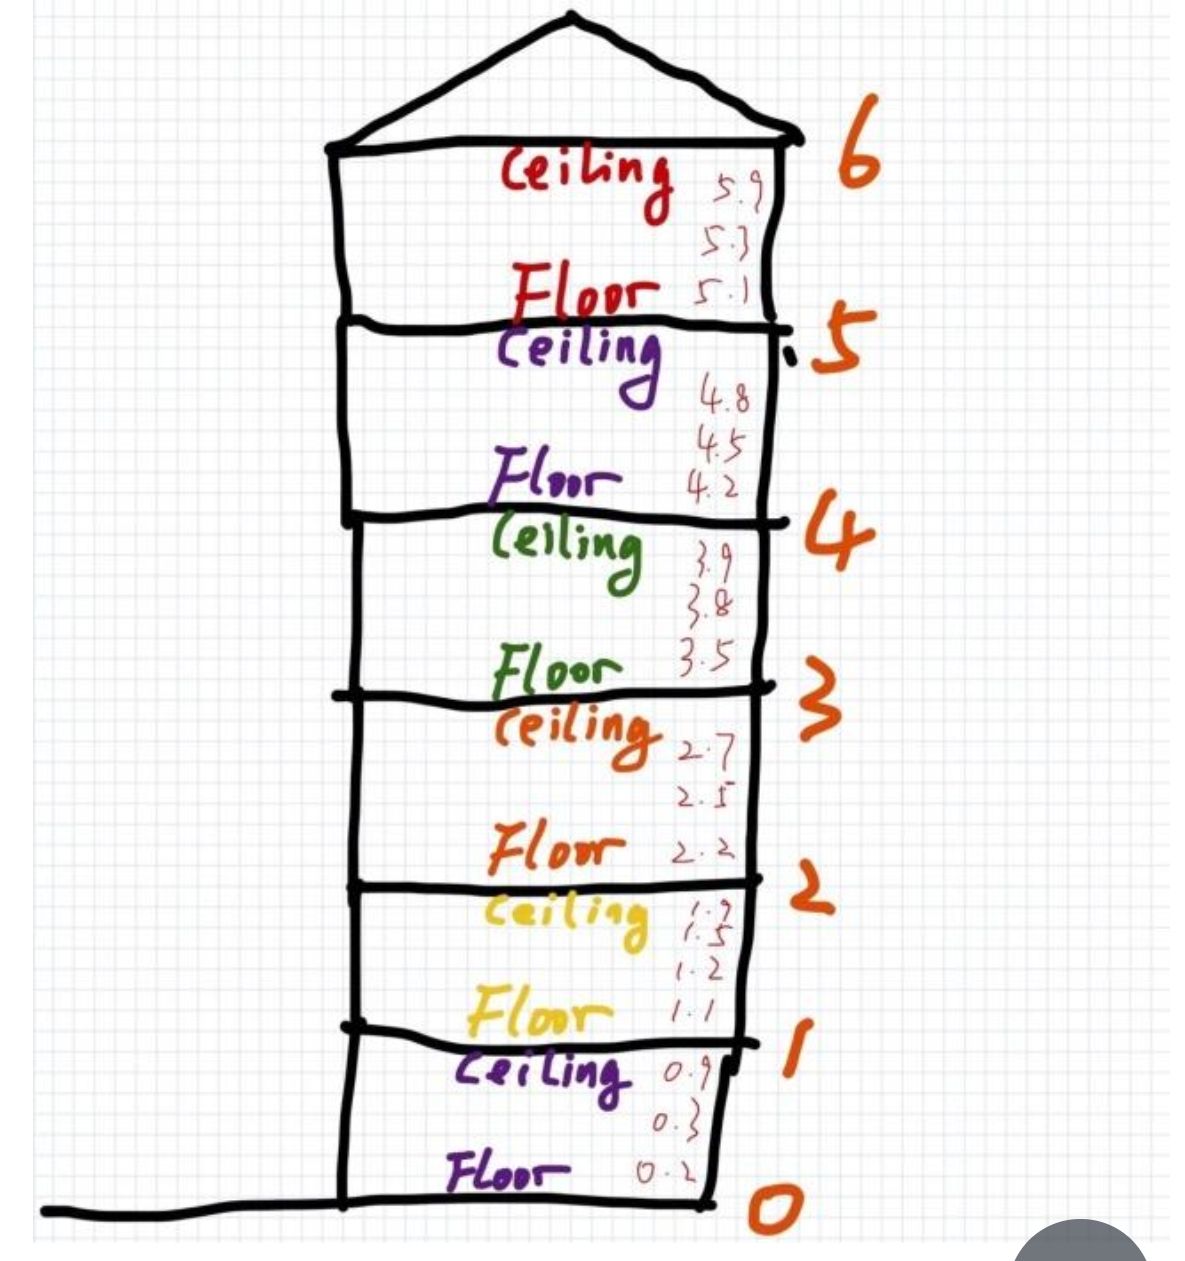 6
Ceiling 5.9
5.3
Floor 5.1
5
Ceiling
4.8
4.5
Floor 4.2
4
Ceiling 3.9
3.8
Floor 3.5
3
Ceiling 2.7
2.5
Floor 2.2
2
Ceiling 1.9
1.5
1.2
Floor 1.1
1
Ceiling 0.9
0.3
Floor 0.2
0